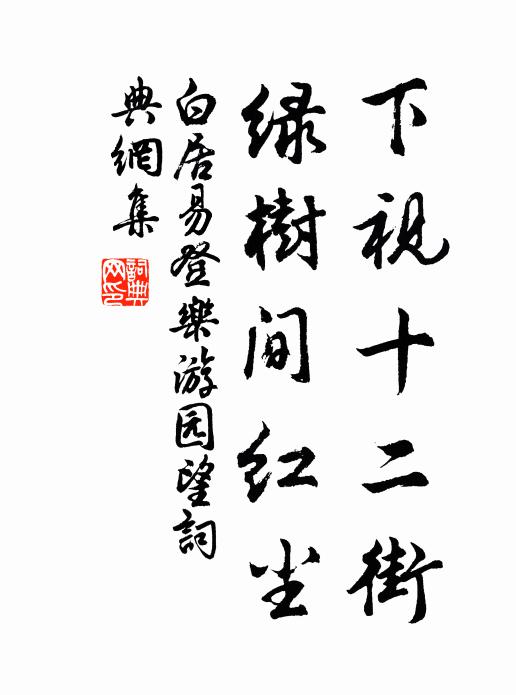 下視十二街
緑樹間红尘
白居易登樂游园望詞
典網集
詞典
网印